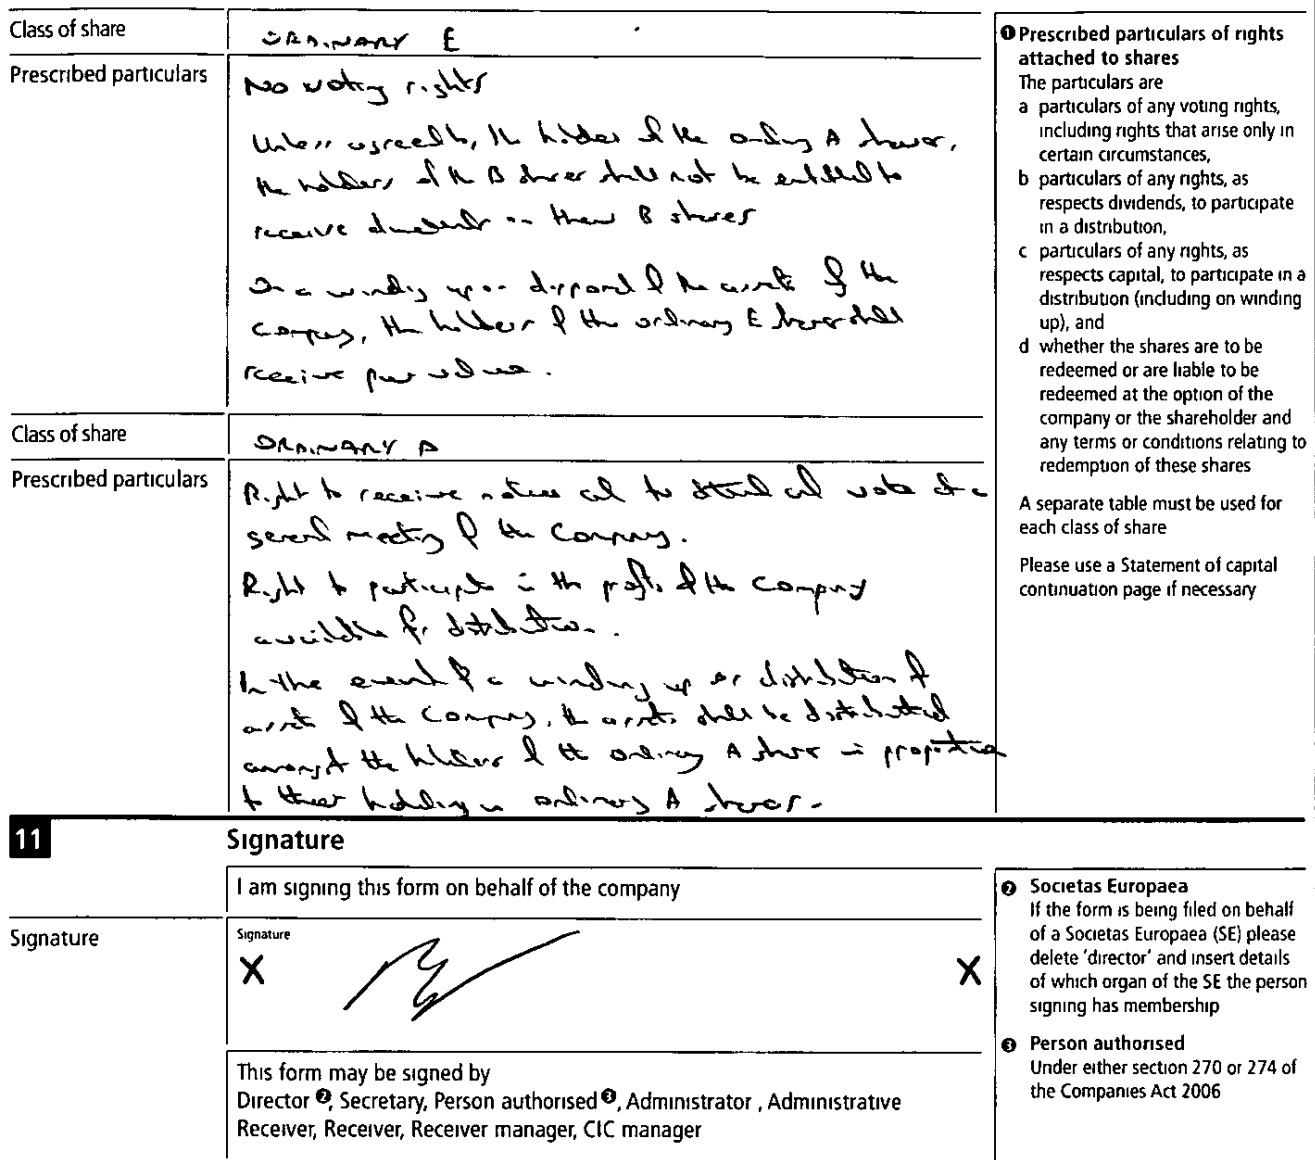 Class of share
ORDINARY E
Prescribed particulars
No voting rights
Unless agreed by the holders of the ordinary A shares,
the holders of the B shares shall not be entitled to
receive dividends on their B shares
On a winding up or disposal of the assets of the
Company, the holders of the ordinary E shares shall
receive par value.
Class of share
ORDINARY A
Prescribed particulars
Right to receive notice and to attend and vote at a
general meeting of the Company.
Right to participate in the profits of the Company
available for distribution.
In the event of a winding up or distribution of
assets of the Company, the assets shall be distributed
amongst the holders of the ordinary A shares in proportion
to their holding in ordinary A shares.
❶ Prescribed particulars of rights
attached to shares
The particulars are
a particulars of any voting rights,
including rights that arise only in
certain circumstances,
b particulars of any rights, as
respects dividends, to participate
in a distribution,
c particulars of any rights, as
respects capital, to participate in a
distribution (including on winding
up), and
d whether the shares are to be
redeemed or are liable to be
redeemed at the option of the
company or the shareholder and
any terms or conditions relating to
redemption of these shares
A separate table must be used for
each class of share
Please use a Statement of capital
continuation page if necessary
11
Signature
I am signing this form on behalf of the company
Signature
Signature
X X
This form may be signed by
Director ❷, Secretary, Person authorised ❸, Administrator , Administrative
Receiver, Receiver, Receiver manager, CIC manager
❷ Societas Europaea
If the form is being filed on behalf
of a Societas Europaea (SE) please
delete 'director' and insert details
of which organ of the SE the person
signing has membership
❸ Person authorised
Under either section 270 or 274 of
the Companies Act 2006